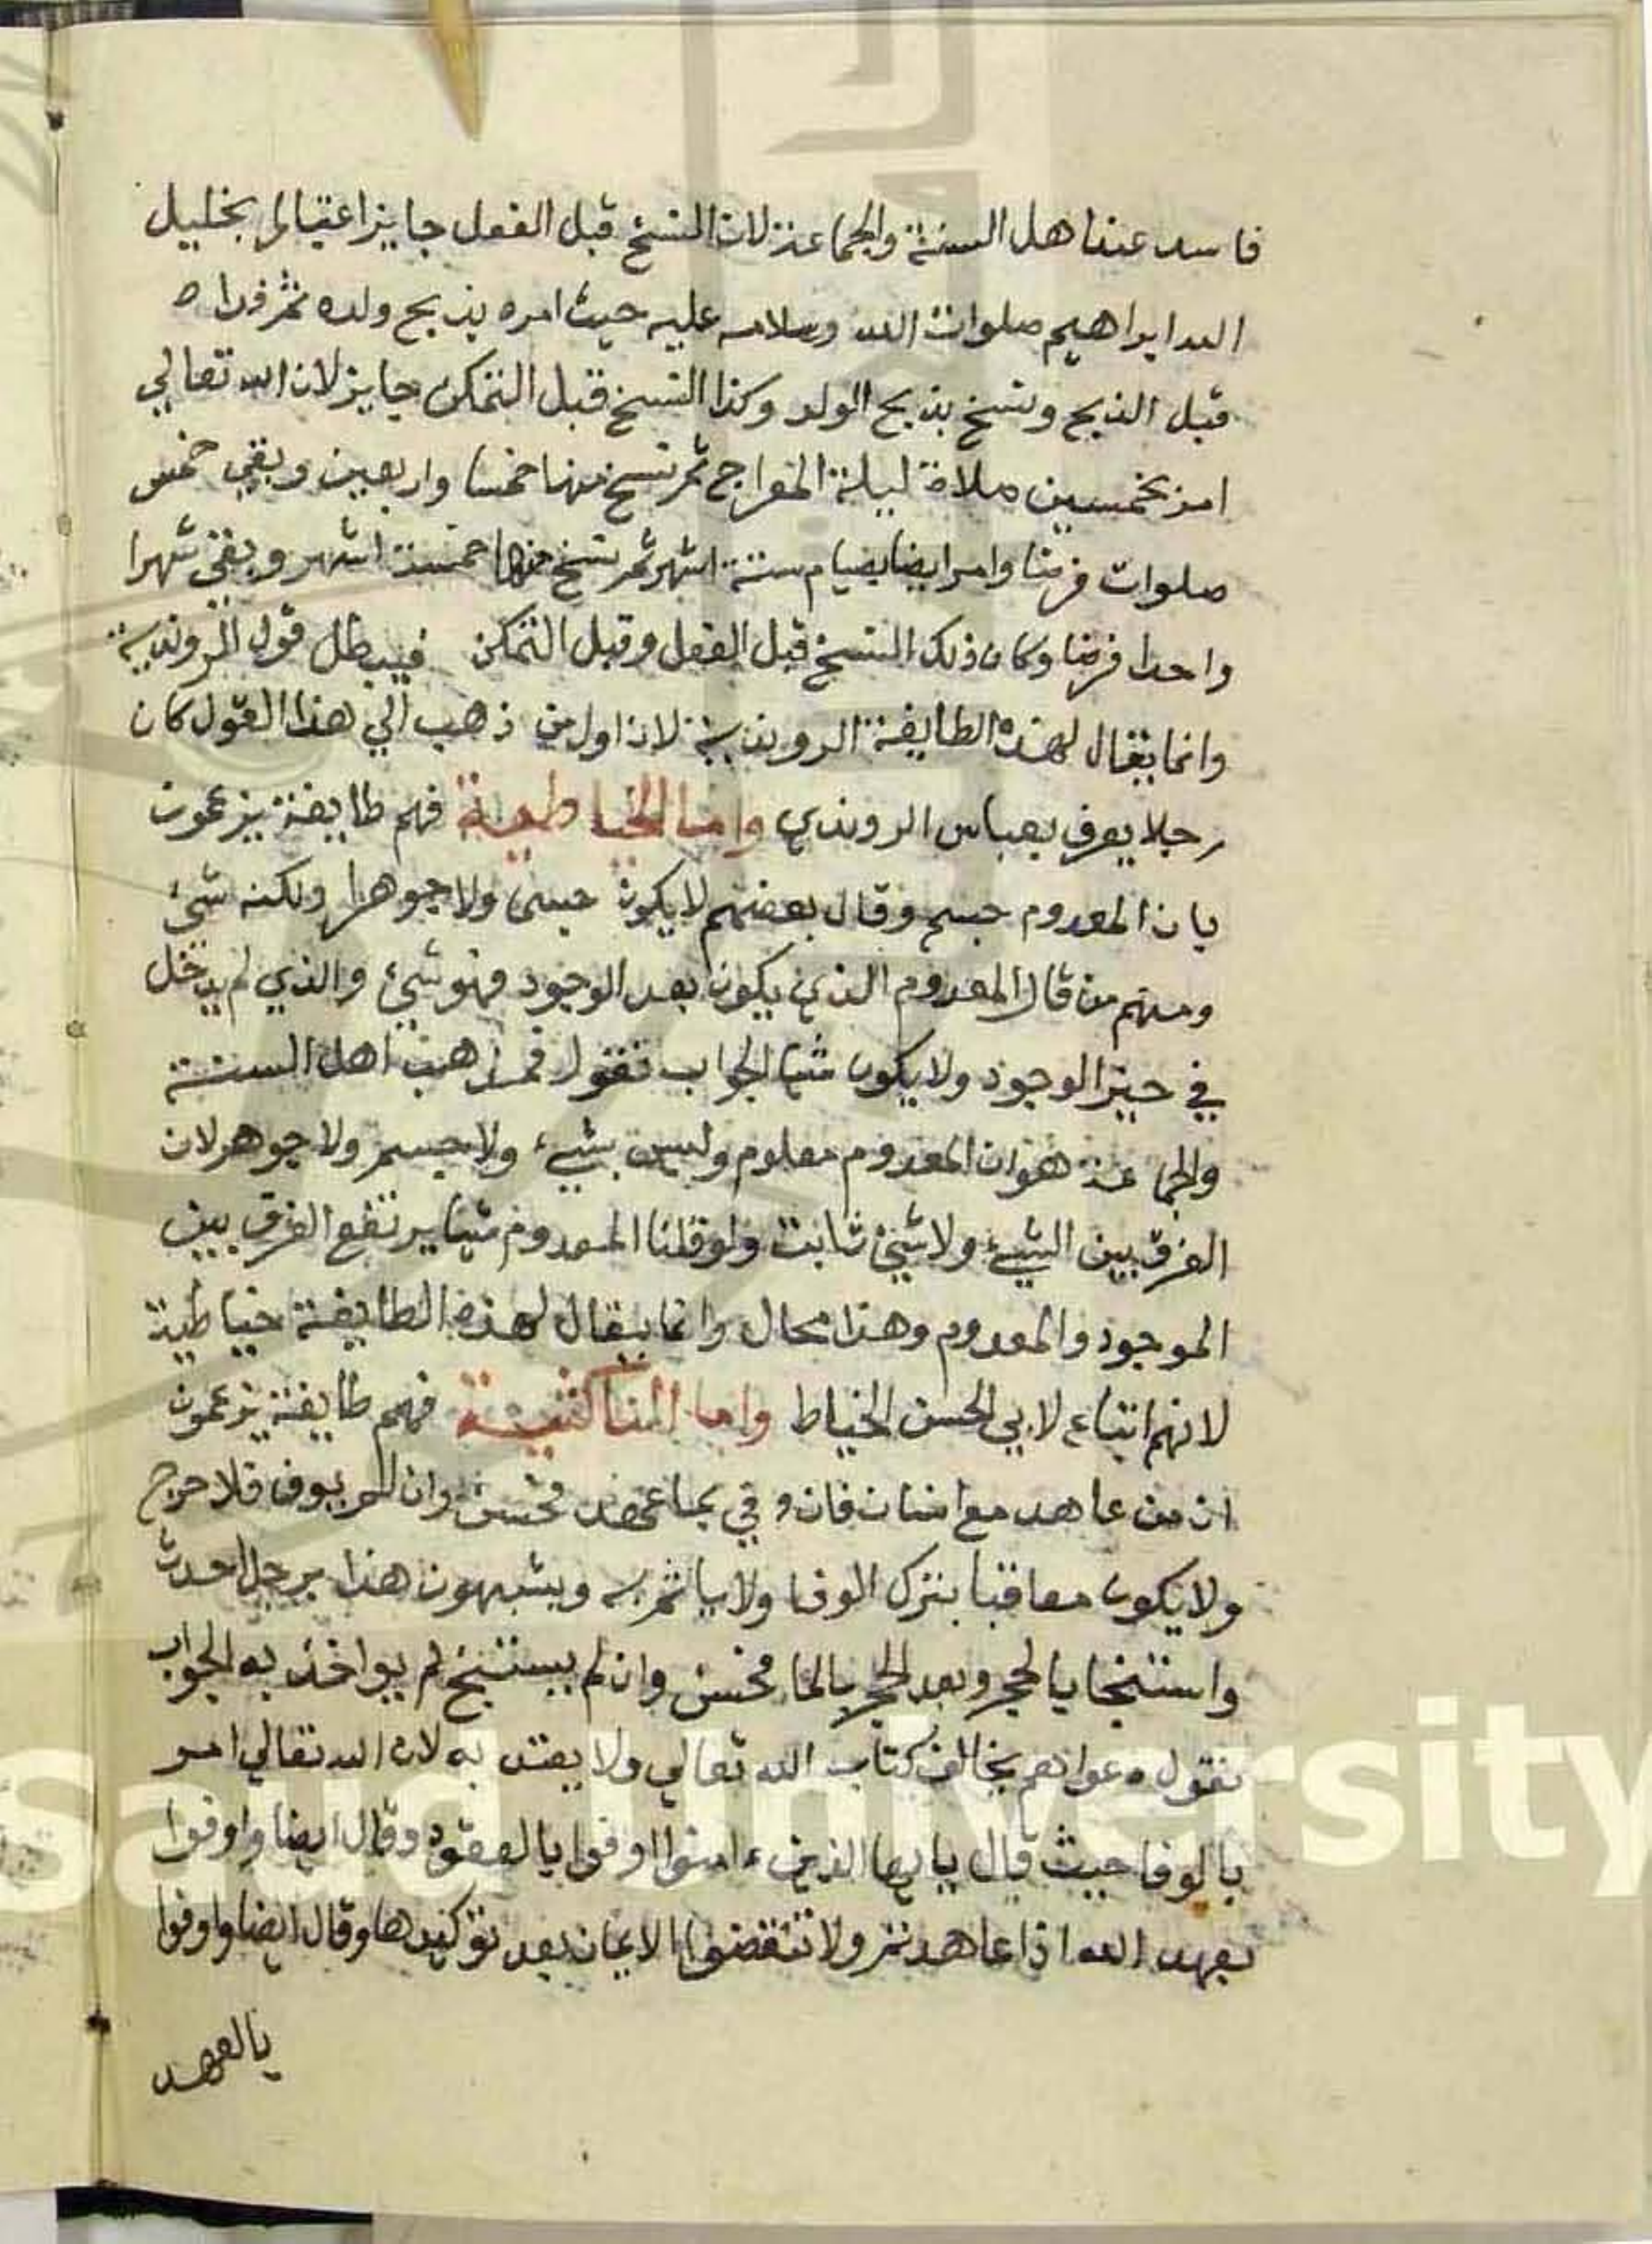 فاسد عند اهل السنة والجماعة لان النسخ قبل الفعل جايز اعتبارا بخليل
الله ابراهيم صلوات الله وسلامه عليه حيث امره بذبح ولده ثم فداه
قبل الذبح ونسخ بذبح الولد وكذا النسخ قبل التمكن جايز لان الله تعالي
امر بخمسين صلاة ليلة المعراج ثم نسخ منها خمسا واربعين وبقي خمس
صلوات فرضا وامر ايضا بصيام ستة اشهر ثم نسخ منها خمسة اشهر وبقي شهرا
واحدا فرضا وكان ذلك النسخ قبل الفعل وقبل التمكن فيبطل قول الروندية
وانما يقال لهذه الطايفة الروندية لان اول من ذهب الي هذا القول كان
رجلا يعرف بعباس الروندي واما الخياطية فهم طايفة يزعمون
بان المعدوم جسم وقال بعضهم لا يكون جسما ولا جوهرا ولكنه شئ
ومنهم من قال المعدوم الذي يكون بعد الوجود فهو شئ والذي لم يدخل
في حيز الوجود ولا يكون شيا الجواب نقول فمذهب اهل السنة
والجماعة هو ان المعدوم معلوم وليس بشيء ولا جسم ولا جوهر لان
الفرق بين الشيء ولا شئ ثابت ولو قلنا المعدوم شيا يرتفع الفرق بين
الموجود والمعدوم وهذا محال وانما يقال لهذه الطايفة خياطية
لانهم اتباع لابي الحسن الخياط واما الناكثية فهم طايفة يزعمون
ان من عاهد مع انسان فان وفي بما عهد فحسن وان لم يوف فلا حرج
ولا يكون معاقبا بترك الوفا ولا ياثم به ويشبهون هذا برجل احدث
واستنجا بالحجر وبعد الحجر بالماء فحسن وان لم يستنج لم يواخذ به الجواب
نقول دعواهم يخالف كتاب الله تعالي ولا يعتد به لان الله تعالي امر
بالوفا حيث قال يا يها الذين ءامنوا اوفوا بالعقود وقال ايضا واوفوا
بعهد الله اذا عاهدتم ولا تنقضوا الايمان بعد توكيدها وقال ايضا واوفوا
بالعهد
saud University